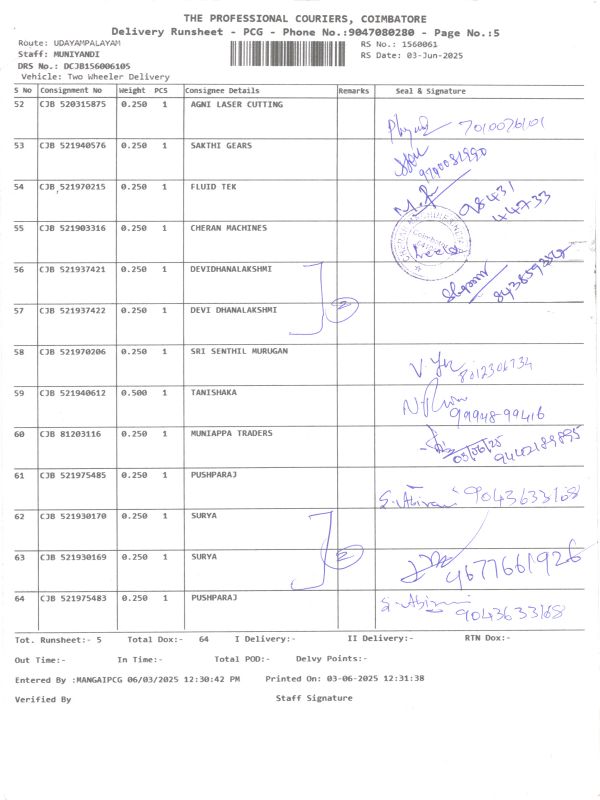 THE PROFESSIONAL COURIERS, COIMBATORE
Delivery Runsheet - PCG - Phone No.:9047080280 - Page No.:5
Route: UDAYAMPALAYAM RS No.: 1560061
Staff: MUNIYANDI RS Date: 03-Jun-2025
DRS No.: DCJB156006105
Vehicle: Two Wheeler Delivery
S No Consignment No Weight PCS Consignee Details Remarks Seal & Signature
52 CJB 520315875 0.250 1 AGNI LASER CUTTING
7010076101
53 CJB 521940576 0.250 1 SAKTHI GEARS
9790081990
54 CJB 521970215 0.250 1 FLUID TEK
98431
44733
55 CJB 521903316 0.250 1 CHERAN MACHINES
56 CJB 521937421 0.250 1 DEVIDHANALAKSHMI
2
57 CJB 521937422 0.250 1 DEVI DHANALAKSHMI
58 CJB 521970206 0.250 1 SRI SENTHIL MURUGAN
8012306734
59 CJB 521940612 0.500 1 TANISHAKA
99948-99416
60 CJB 81203116 0.250 1 MUNIAPPA TRADERS
03/06/25 94402189895
61 CJB 521975485 0.250 1 PUSHPARAJ
S. Abirami 9043633168
62 CJB 521930170 0.250 1 SURYA
2
63 CJB 521930169 0.250 1 SURYA
9677661926
64 CJB 521975483 0.250 1 PUSHPARAJ
S. Abirami
9043633168
Tot. Runsheet:- 5 Total Dox:- 64 I Delivery:- II Delivery:- RTN Dox:-
Out Time:- In Time:- Total POD:- Delvy Points:-
Entered By :MANGAIPCG 06/03/2025 12:30:42 PM Printed On: 03-06-2025 12:31:38
Verified By Staff Signature